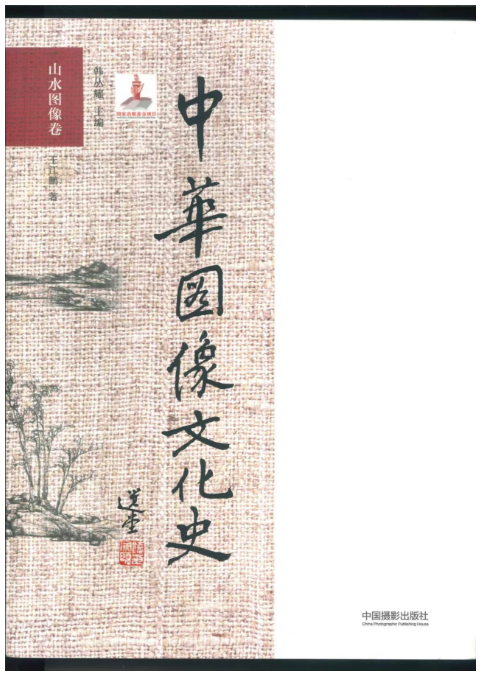 山水图像卷
王江鹏 著
韩丛耀 主编
中華图像文化史
选堂
中国摄影出版社
China Photographic Publishing House